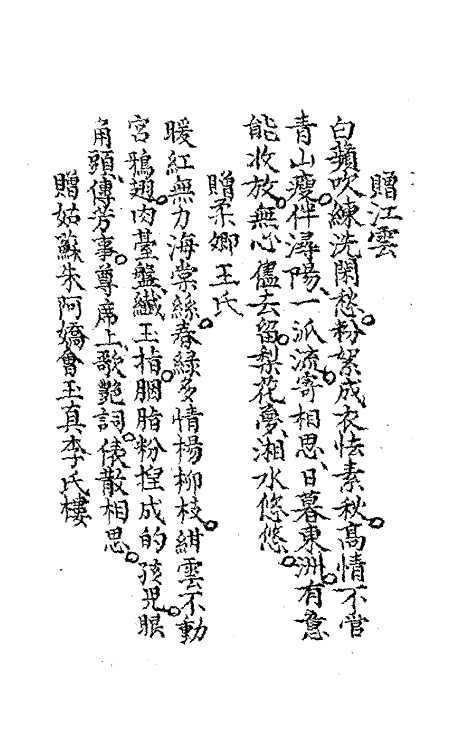 贈江雲
白蘋吹練洗閑愁。粉絮成衣怯素秋。高情不管
青山瘦。伴潯陽、一派流。寄相思、日暮東洲。有意
能收放。無心儘去留。梨花夢、湘水悠悠。
贈柔卿王氏
暖紅無力海棠絲。春綠多情楊柳枝。紺雲不動
宮鴉翅。肉臺盤、纖玉指。胭脂粉揑成的孩兒眼
角頭、傳芳事。尊席上、歌艷詞。俵散相思。
贈姑蘇朱阿嬌會玉真李氏樓